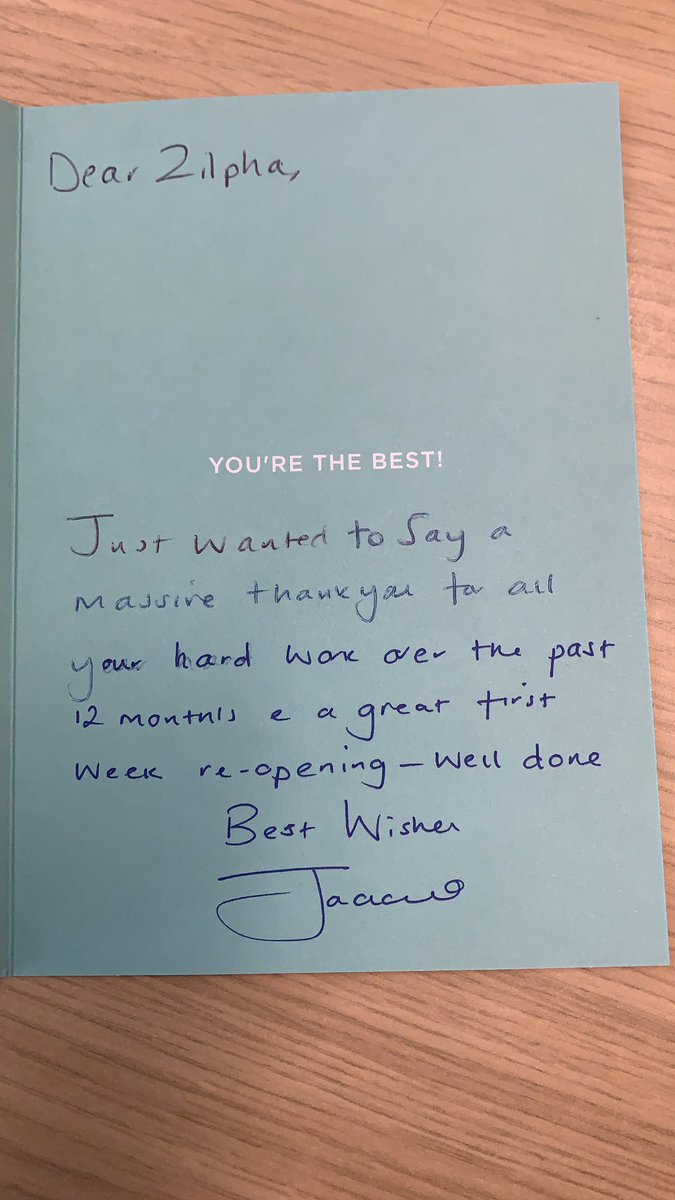 Dear Zilpha,
YOU'RE THE BEST!
Just wanted to Say a
massive thankyou for all
your hard work over the past
12 months & a great first
week re-opening – Well done
Best Wishes